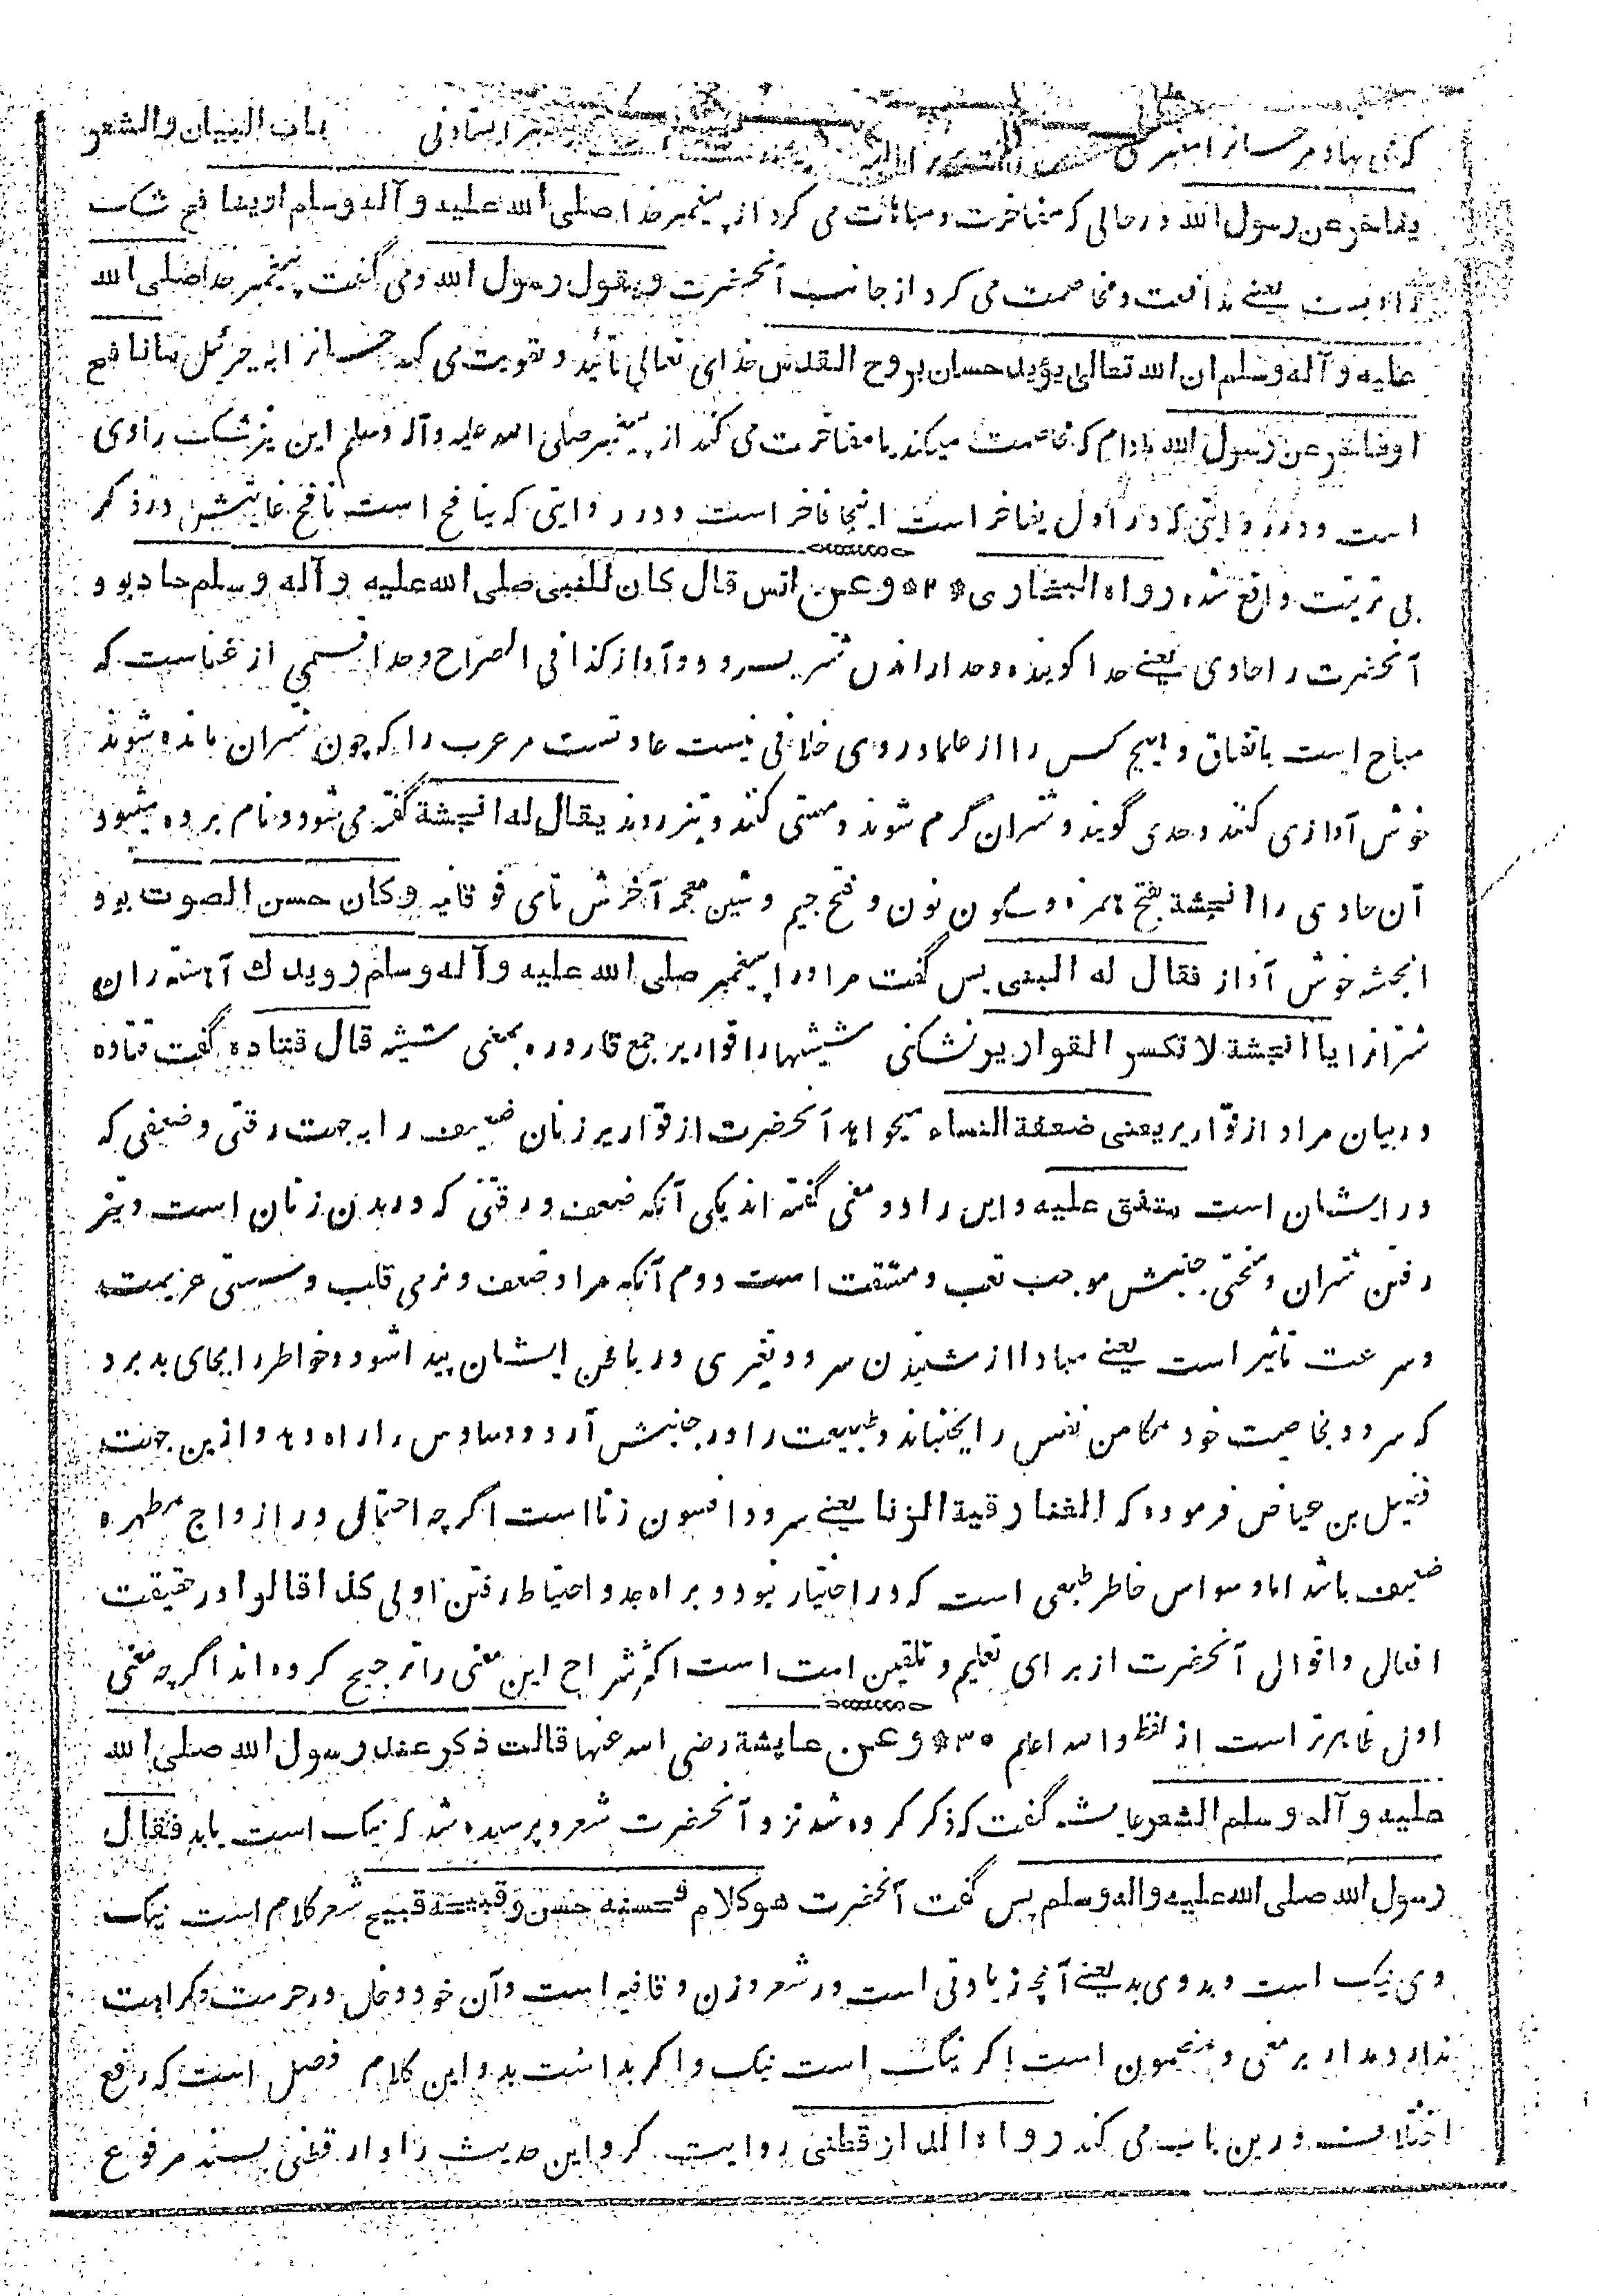 باب البيان والشعر
که می نهاد مر حسان را منبر
يفاخر عن رسول الله در حالی که مفاخرت و مباهات می کرد از پیغمبر خدا صلى الله عليه وآله وسلم او ينافح شک
راویست یعنے مدافعت و مخاصمت می کرد از جانب آنحضرت ويقول رسول الله ومی گفت پیغمبر خدا صلى الله
عليه و آله وسلم ان الله تعالى يؤيد حسان بروح القدس خدای تعالی تائید و تقویت می کند حسان را به جبرئیل ما نافح
او فاخر عن رسول الله مادام که مخاصمت میکند یا مفاخرت می کند از پیغمبر صلی الله علیه وآله وسلم این نیز شک راوی
است و در روایتی که در اول یفاخر است اینجا فاخر است و در روایتی که ینافح است نافح غایتش در ذکر
بی ترتیب واقع شده رواه البخاري * ۲۹ * وعن انس قال كان للنبي صلى الله عليه و آله وسلم حاد بود
آنحضرت را حادی یعنے حدا گوینده وحدا راندن شتر بسرود و آواز کذا فی الصراح وحدا قسمی از غناست که
مباح است باتفاق و هیچ کس را از علما در وی خلافی نیست عادتست مر عرب را که چون شتران مانده شوند
خوش آوازی کنند و حدی گویند و شتران گرم شوند و مستی کنند و تیز روند يقال له انجشة گفته می شود و نام برده میشود
آن حادی را انجشة بفتح همزه و سکون نون و فتح جیم و شین معجمه آخرش تای فوقانیه وكان حسن الصوت بود
انجشه خوش آواز فقال له النبى پس گفت مر اورا پیغمبر صلى الله عليه وآله وسلم رويدك آهسته ران
شتر انرا يا انجشة لا تكسر القوارير نشکنی شیشها را قواریر جمع قاروره بمعنی شیشه قال قتاده گفت قتاده
در بیان مراد از قواریر يعنى ضعفة النساء میخواهد آنحضرت از قواریر زنان ضعیف را به جهت رقتی و ضعیفی که
در ایشان است متفق عليه و این را دو معنی گفته اند یکی آنکه ضعف و رقتی که در بدن زنان است و تیز
رفتن شتران و سختی جنبش موجب تعب و مشقت است دوم آنکه مراد ضعف و نرمی قلب و سستی عزیمت
و سرعت تاثیر است یعنے مبادا از شنیدن سرود تغیری در باطن ایشان پیدا شود و خاطر را بجای بد برد
که سرود بخاصیت خود مکامن نفس را بجنباند و طبیعت را در جنبش آرد و وساوس را راه دهد و ازین جهت
فضیل بن عیاض فرموده که الغنا رقية الزنا یعنے سرود افسون زنا است اگرچه احتمال در ازواج مطهره
ضعیف باشد اما وسواس خاطر طبعی است که در اختیار نبود و براه جد و احتیاط رفتن اولی كذا قالوا در حقیقت
افعال و اقوال آنحضرت از برای تعلیم و تلقین امت است اکثر شراح این معنی را ترجیح کرده اند اگرچه معنی
اول ظاهرتر است از لفظ والله اعلم * ۳۰ * وعن عايشة رضی الله عنها قالت ذكر عند رسول الله صلى الله
عليه و آله وسلم الشعر عایشه گفت که ذکر کرده شد نزد آنحضرت شعر و پرسیده شد که نیک است یا بد فقال
رسول الله صلى الله عليه واله وسلم پس گفت آنحضرت هو كلام فحسنه حسن وقبيحه قبيح شعر کلام است نیک
وی نیک است و بد وی بد یعنے آنچه زیادتی است در شعر وزن و قافیه است و آن خود دخل در حرمت و کراهت
ندارد مدار بر معنی و مضمون است اگر نیک است نیک و اگر بد است بد و این کلام فصل است که رفع
اختلاف درین باب می کند رواه الدارقطنى روایت کرد این حدیث را دارقطنی بسند مرفوع